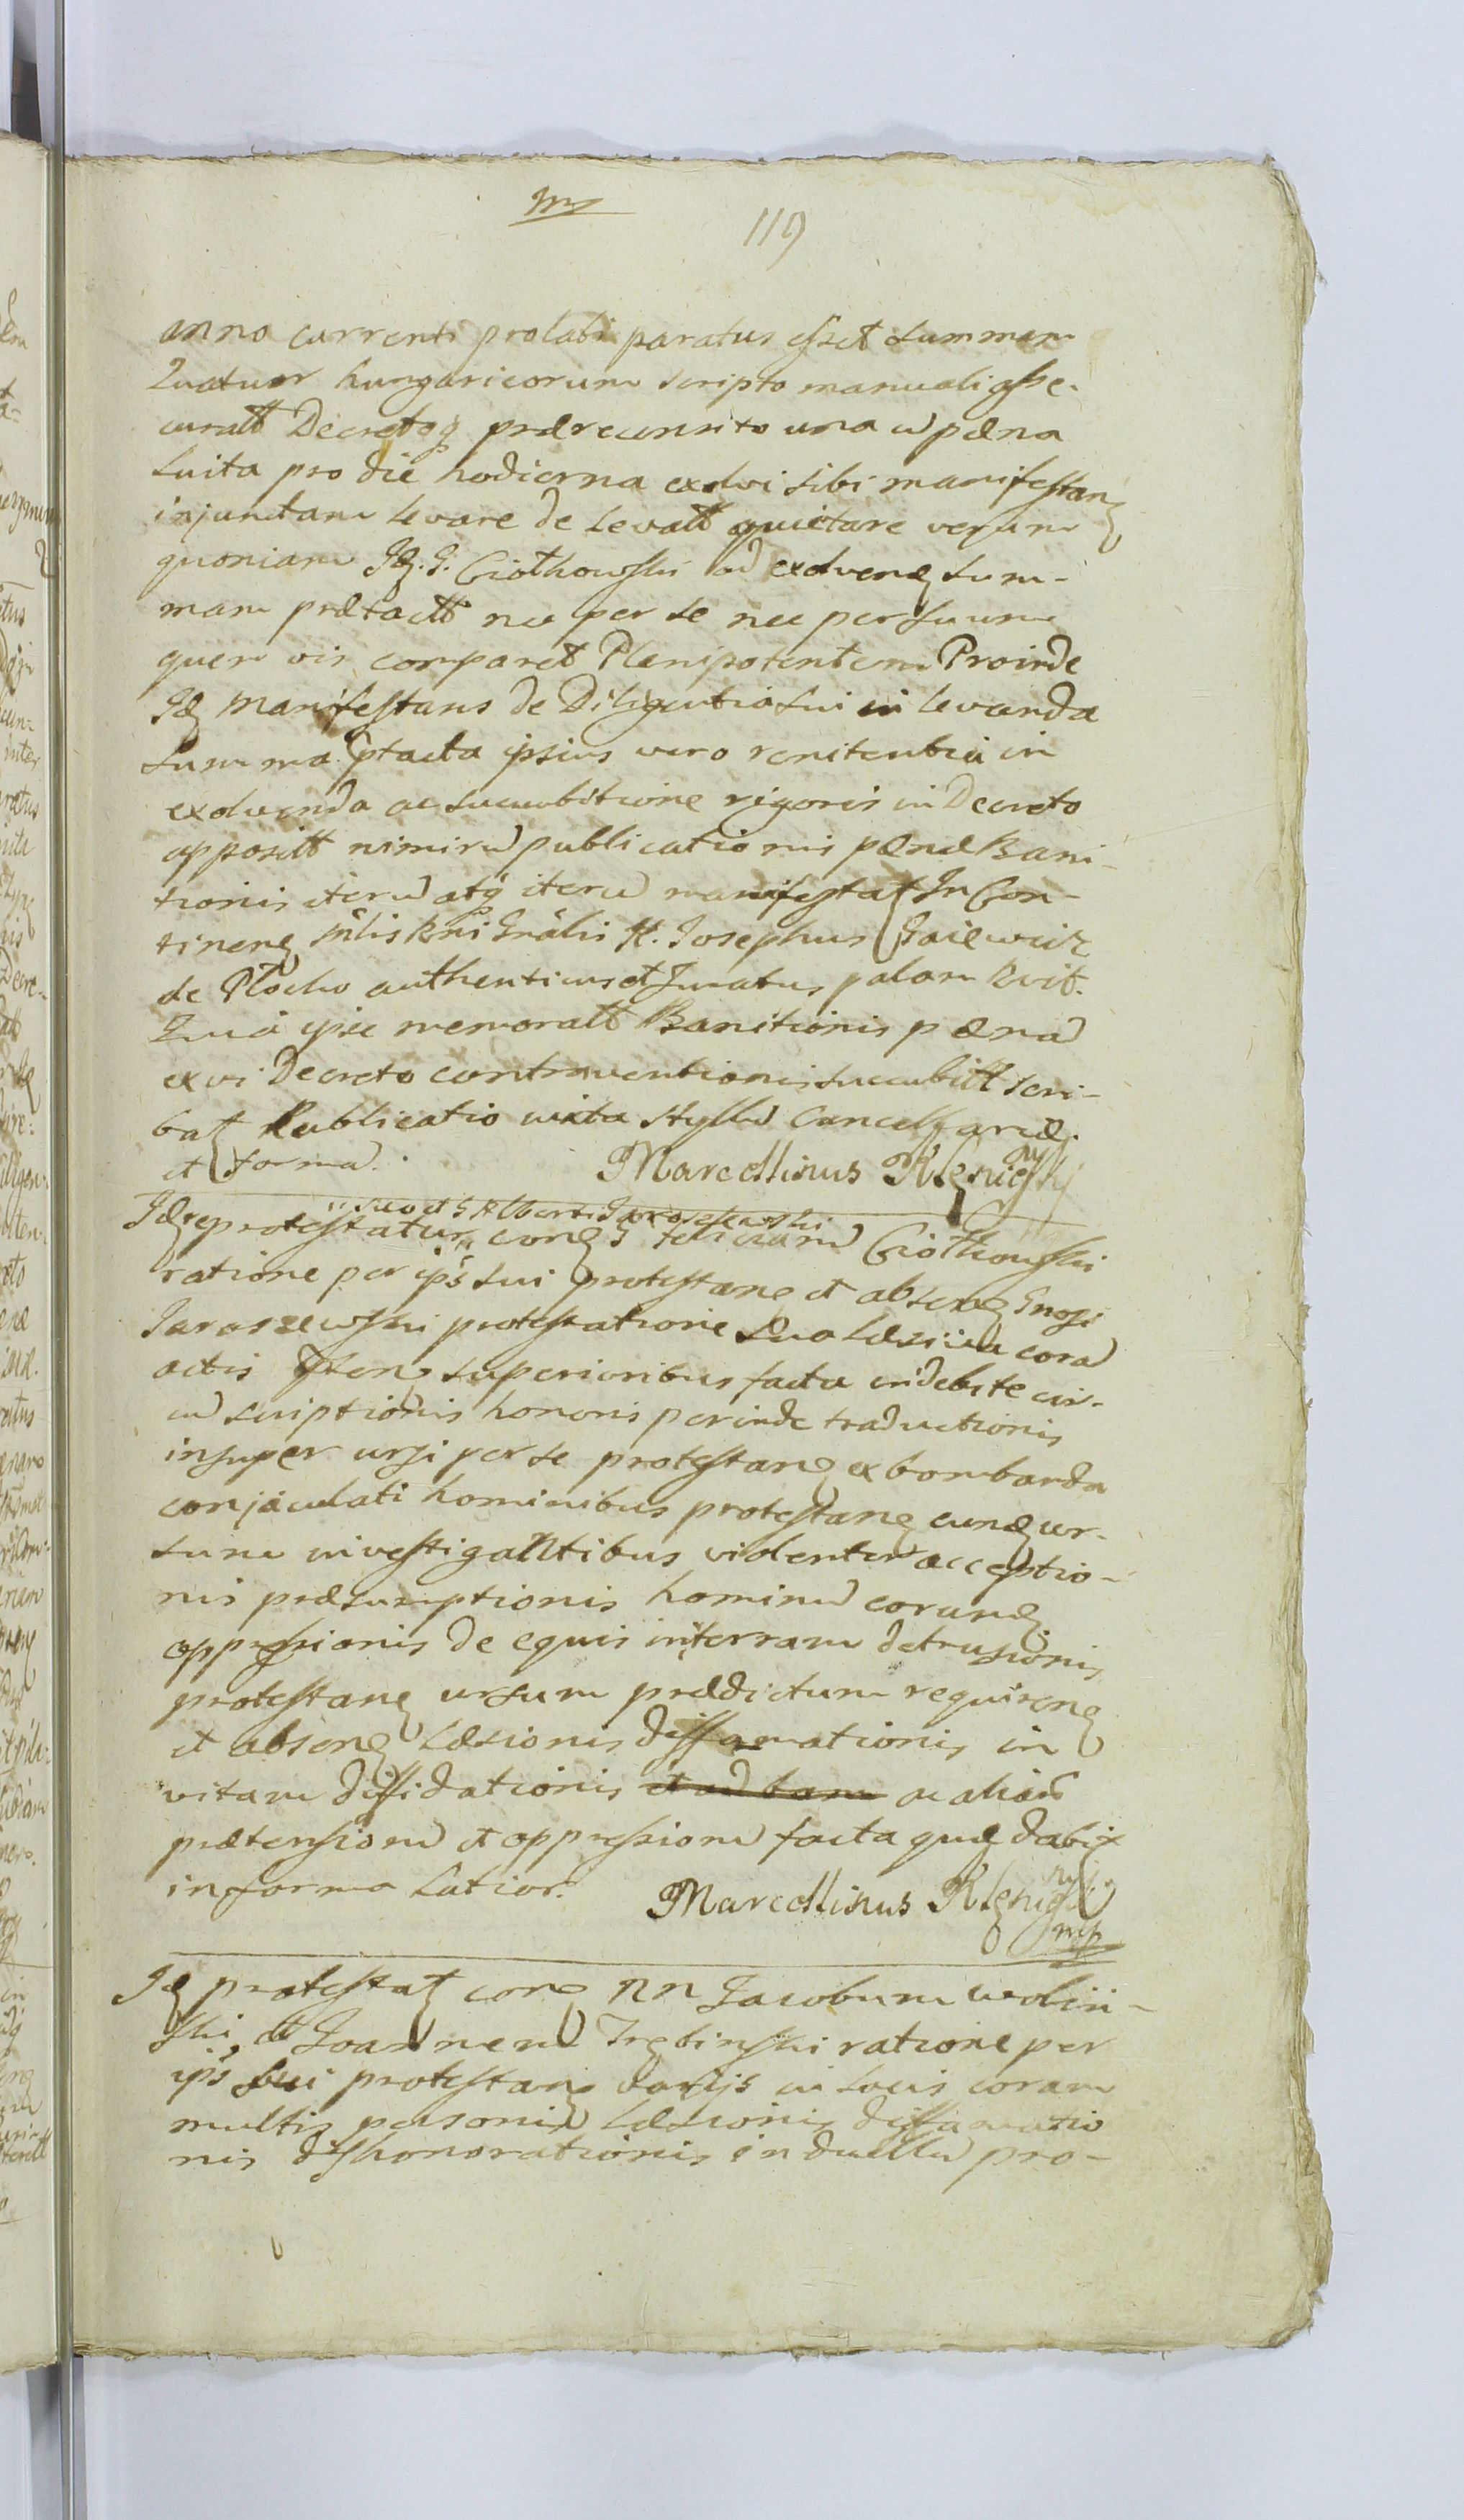 119
anno currenti prolati paratus esset summam
Quatuor hungaricorum scripto manuali asse-
curatt Decretoq prærecensito una cu pæna
luita pro die hodierna exolvi sibi manifestan
injunctam levare de levatt quietare verum
quoniam Id. G. Ciołkowski ad exolvend sum-
mam prætactt nec per se nec per suum
quem vis comparet Plenipotentem Proinde
Id Manifestans de Diligentia sui in levanda
summa ptacta ipsius vero renitentia in
exolvenda ac sucumbitione rigoris in Decreto
apposítt nimiru publicationis pænæ Bani-
tionis iteru atq iteru manifestat In Con-
tinen Mlis Rni Gnalis K. Josephus
de Płocko authenticus et Juratus palam
Quia ipse memoratt Banitionis pæna
ex vi Decreto contraventionis succubitt scri-
bat Publicatio iuxta Styllu Cancellariæ.
et forma.
Marcellinus
Id reprotestatur con G Ciołkowski
suo et G Alberti Jaroszewski
ratione per ips sui protestane et absen Gnosi
Jaroszewski protestatione sua læsiva cora
actis superioribus facta indebite cir-
cu scriptionis honoris perinde traductionis
insuper ursi per se protestan ex bombarda
conjaculati hominibus protestan eund ur-
sum investigantibus violenter acceptio-
nis præsumptionis hominu eorund
oppressionis de equis in terram detrusionis
protestan ursum prædictum requiren
et absen læsionis diffamationis in
vitam diffidationis et ad bane ac aliar
prætensionu et oppressionu facta quæ dabit
in forma latiori
Marcellinus
mp
Id protestat con NN Jacobum Woliń-
ski, et Joannem Trębinski ratione per
ips sui protestan varijs in locis coram
multis personis læsionis diffamatio
nis dishonorationis in duellu pro-